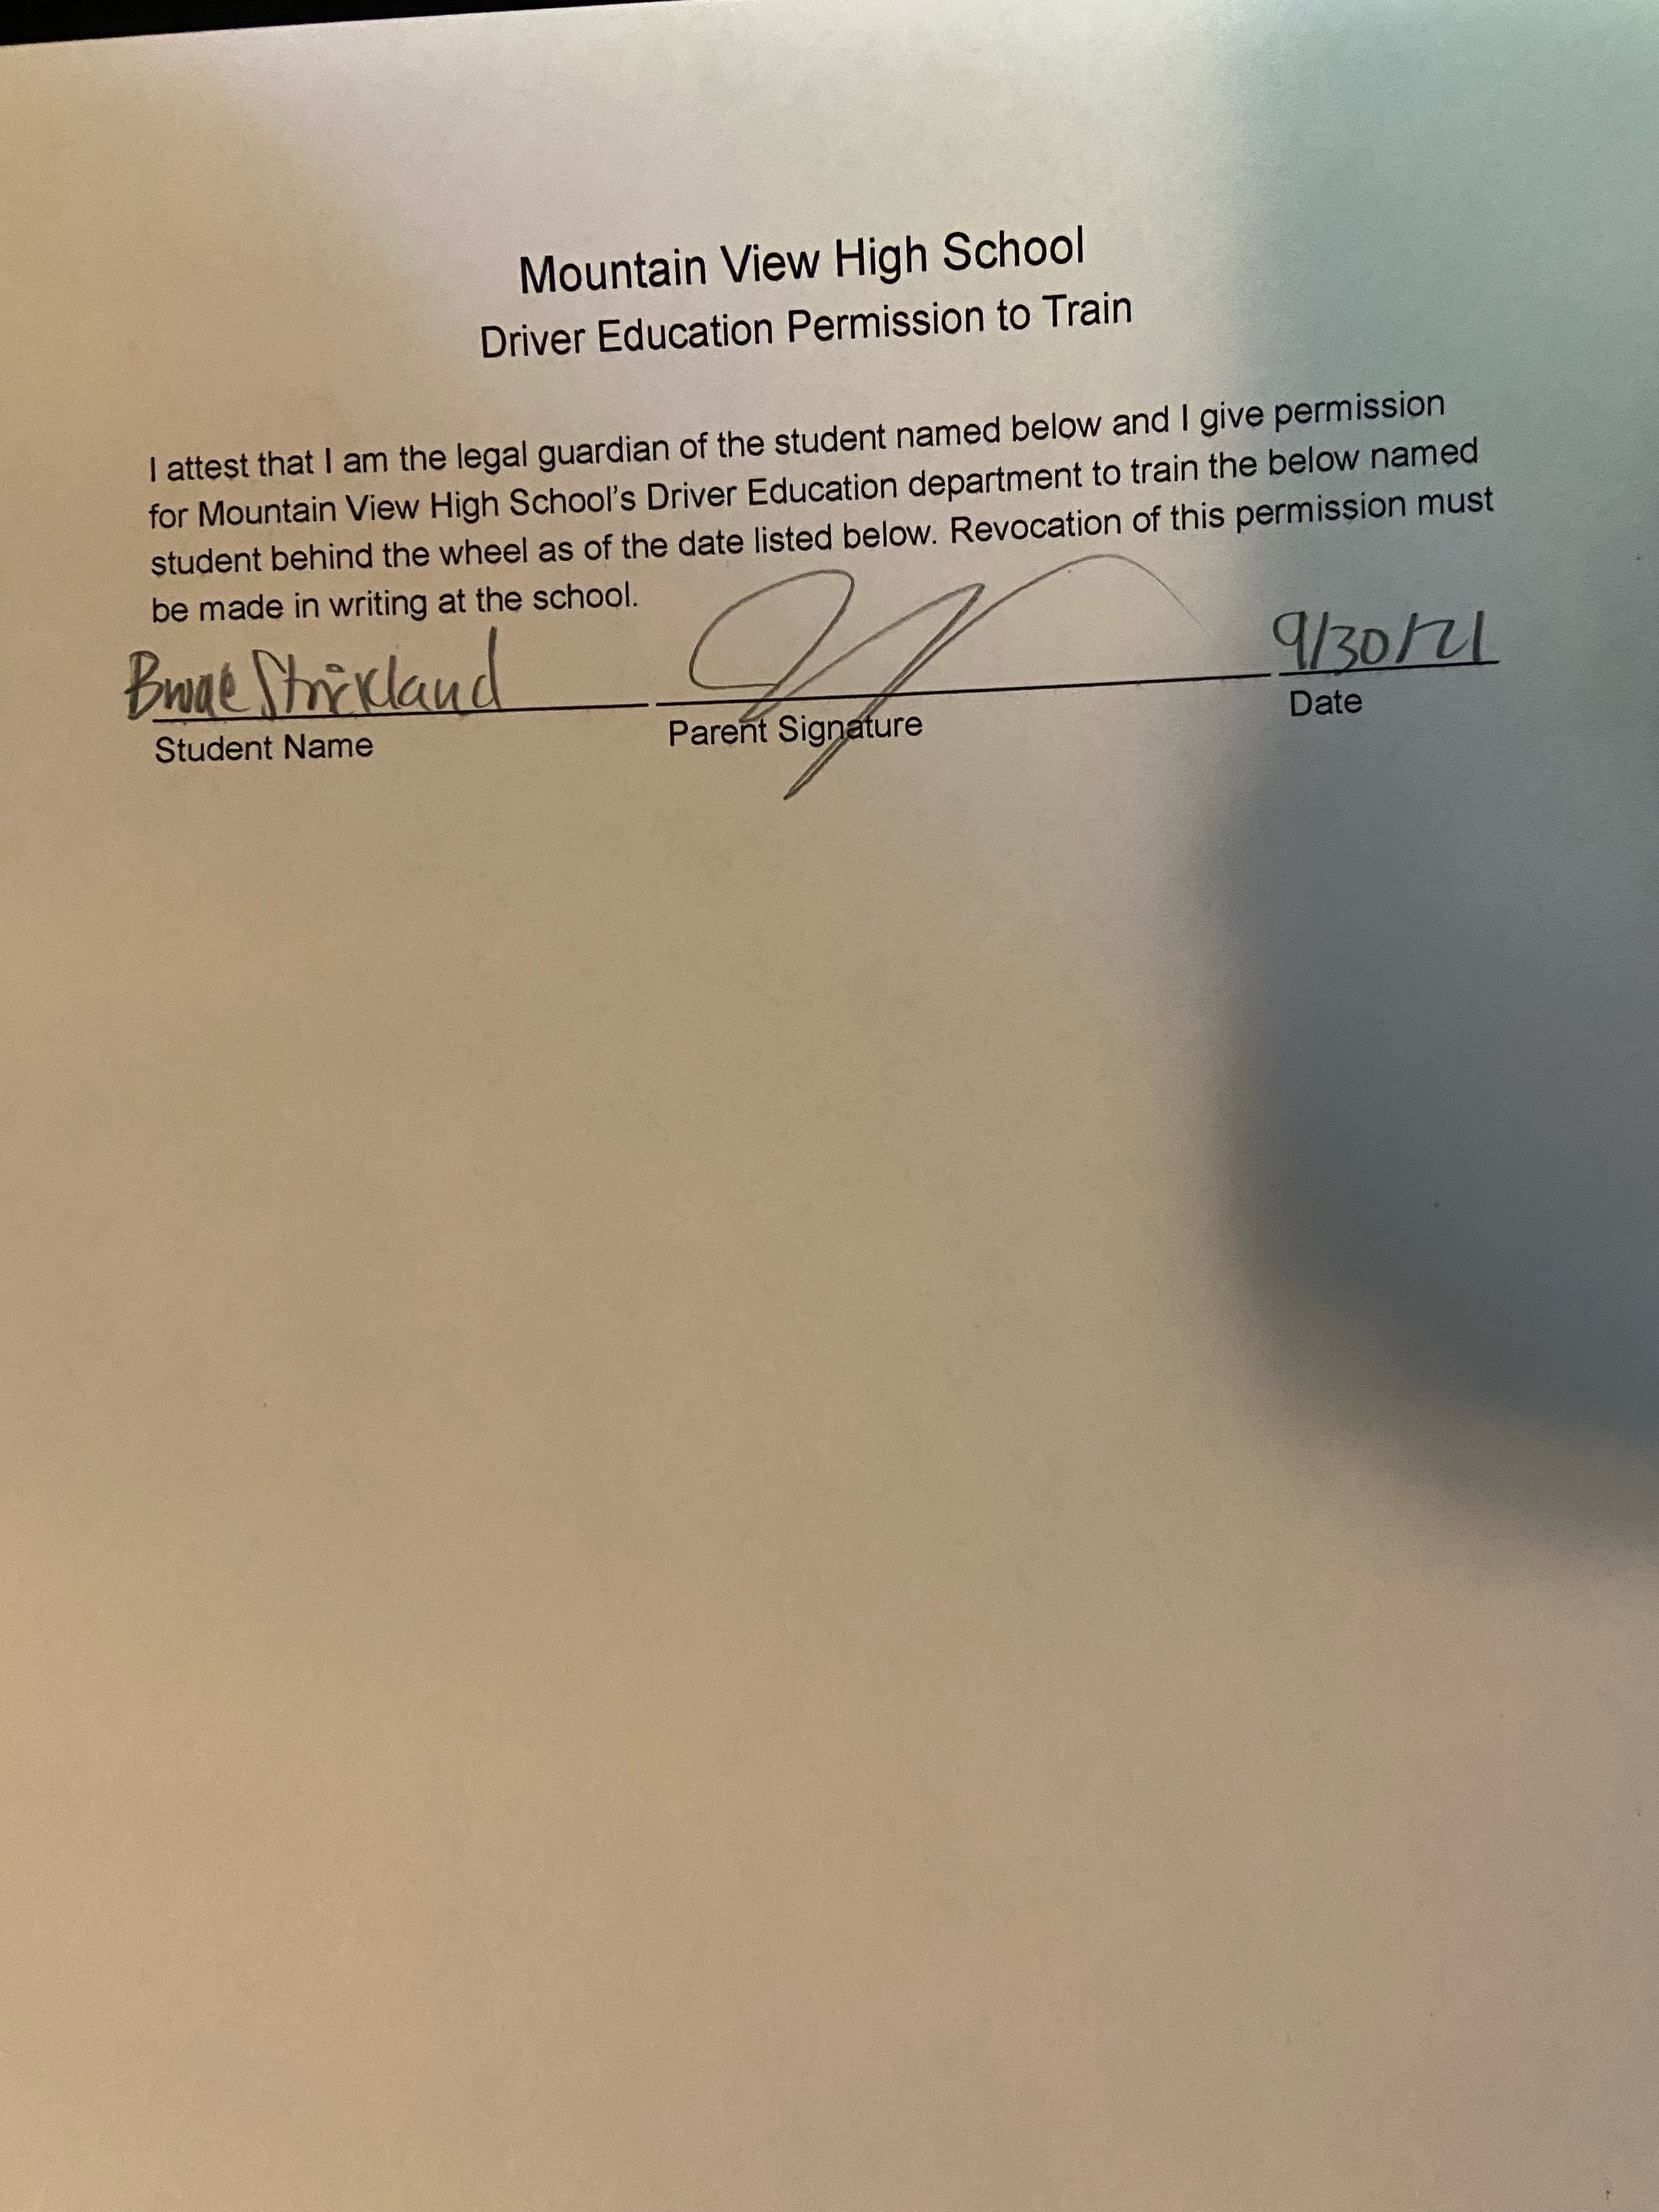 Mountain View High School
Driver Education Permission to Train
I attest that I am the legal guardian of the student named below and I give permission
for Mountain View High School's Driver Education department to train the below named
student behind the wheel as of the date listed below. Revocation of this permission must
be made in writing at the school.
Strickland 9/30/21
Student Name Parent Signature Date